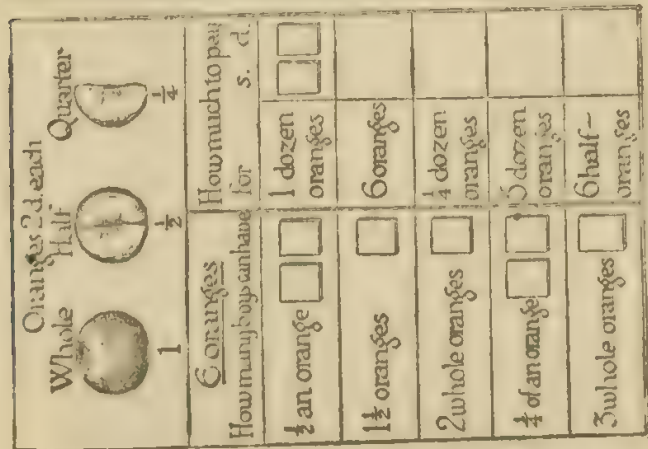 Oranges 2d. each
Whole Half Quarter
1 1/2 1/4
6 oranges
How many boys can have
How much to pay
for s. d.
1/2 an orange
1 dozen
oranges
1 1/2 oranges
6 oranges
2 whole oranges
1/4 dozen
oranges
1/4 of an orange
dozen
oranges
3 whole oranges
6 half-
oranges